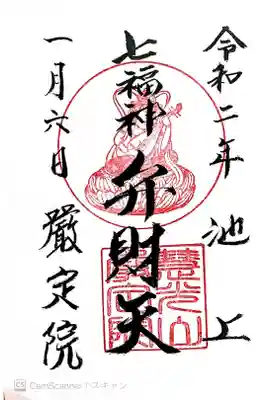 令和二年 池上
七福神 弁財天
一月六日 嚴定院
慧光山
嚴定院
CS CamScanner でスキャン